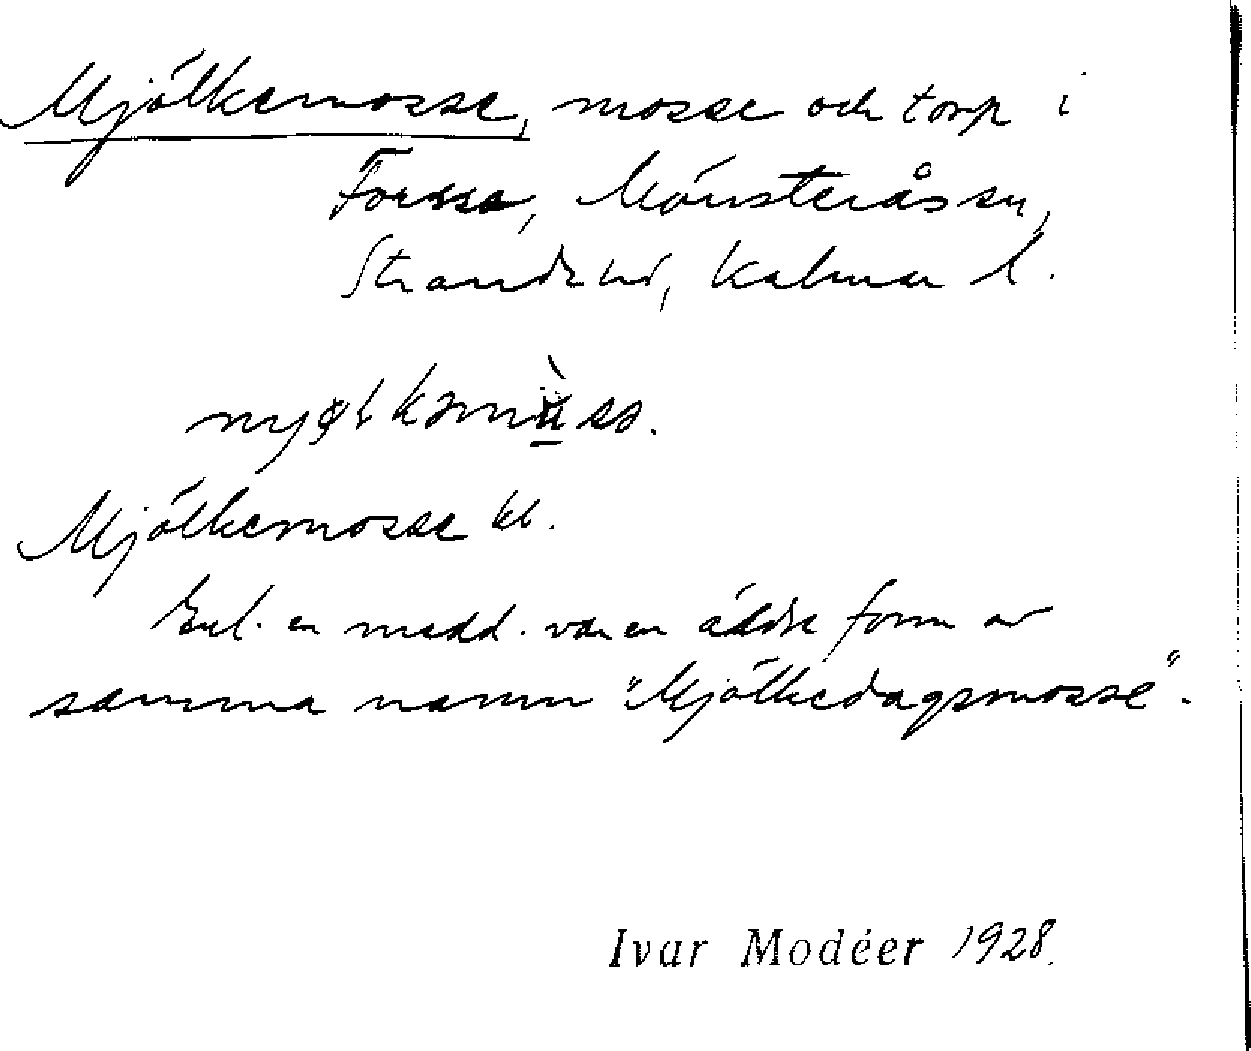 Mjölkemosse, mosse och torp i
Forssa, Mönsterås sn,
Strande hd, Kalmar l.
Mjölkemosse kl.
Enl. en medd. var en äldre form av
samma namn "Mjölkedagsmosse".
Ivar Modéer 1928.